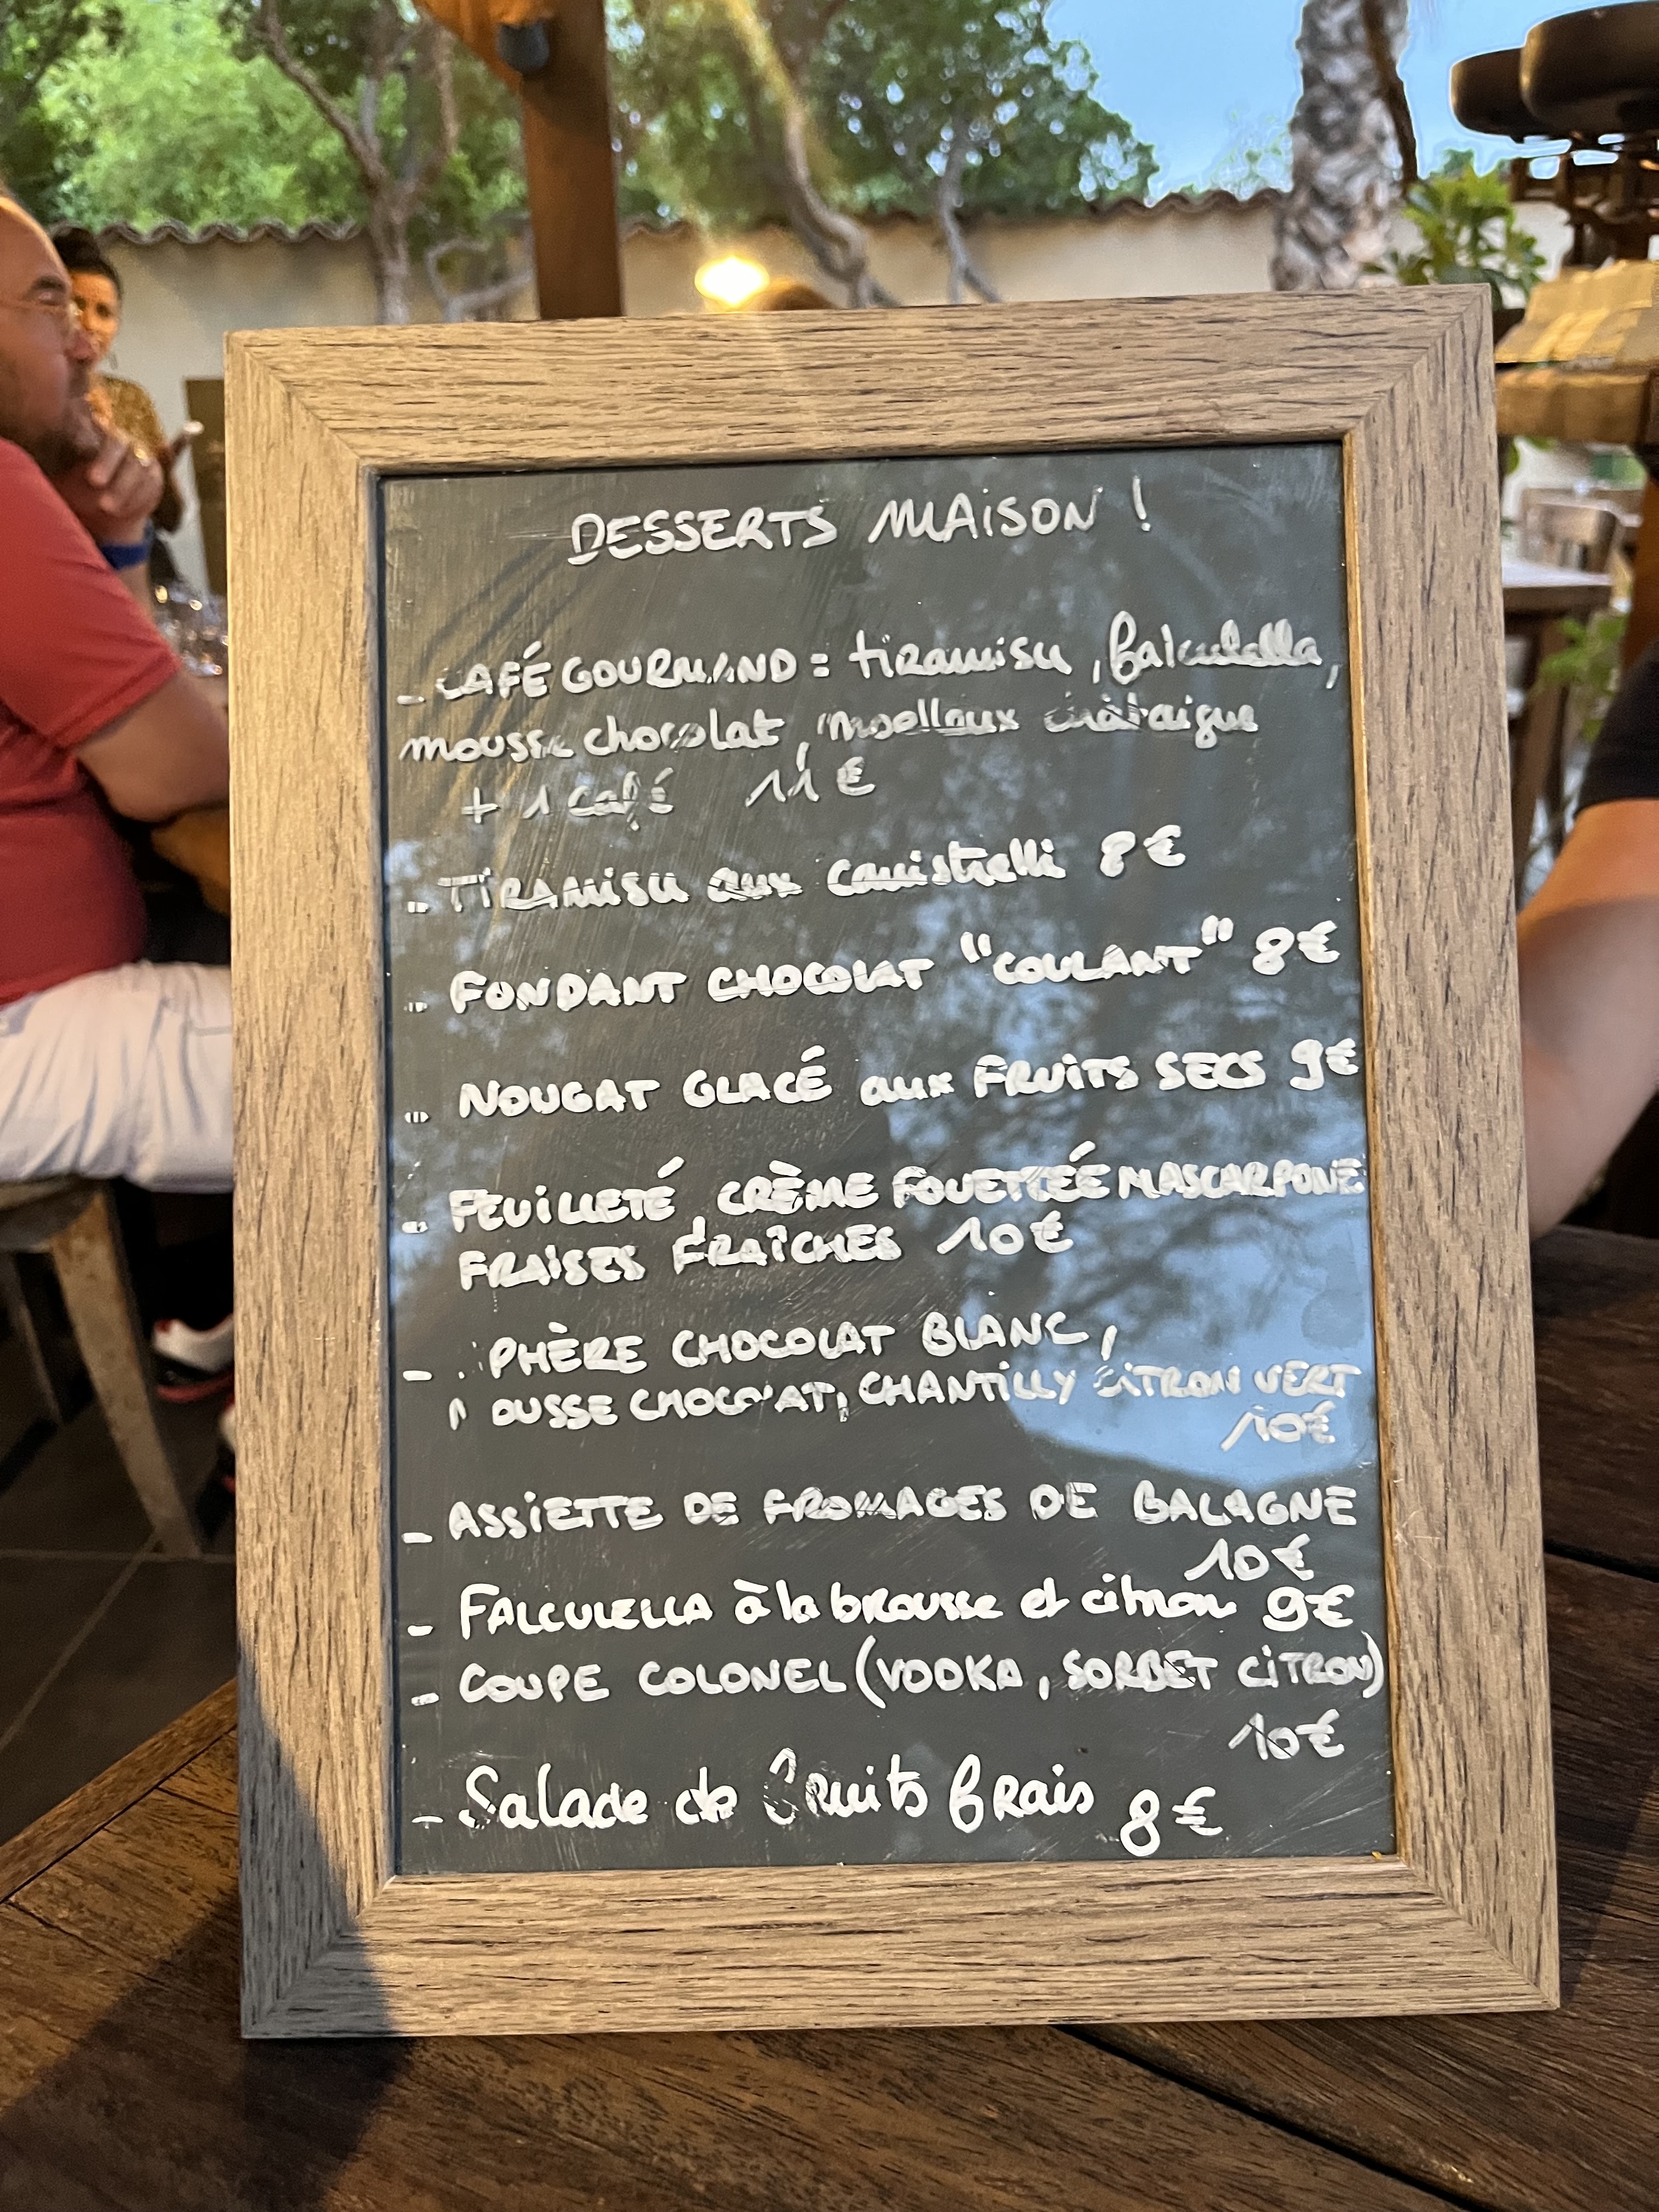 DESSERTS MAISON !
- CAFÉ GOURMAND = tiramisu, falculella,
mousse chocolat, moelleux châtaigne
+ 1 café 11€
- TIRAMISU aux canistrelli 8€
- FONDANT CHOCOLAT "COULANT" 8€
- NOUGAT GLACÉ aux FRUITS SECS 9€
- FEUILLETÉ CRÈME FOUETTÉE MASCARPONE
FRAISES FRAÎCHES 10€
- SPHÈRE CHOCOLAT BLANC,
MOUSSE CHOCOLAT, CHANTILLY CITRON VERT
10€
- ASSIETTE DE FROMAGES DE BALAGNE
10€
- FALCULELLA à la brousse et citron 9€
- COUPE COLONEL (VODKA, SORBET CITRON)
10€
- Salade de Fruits frais 8€